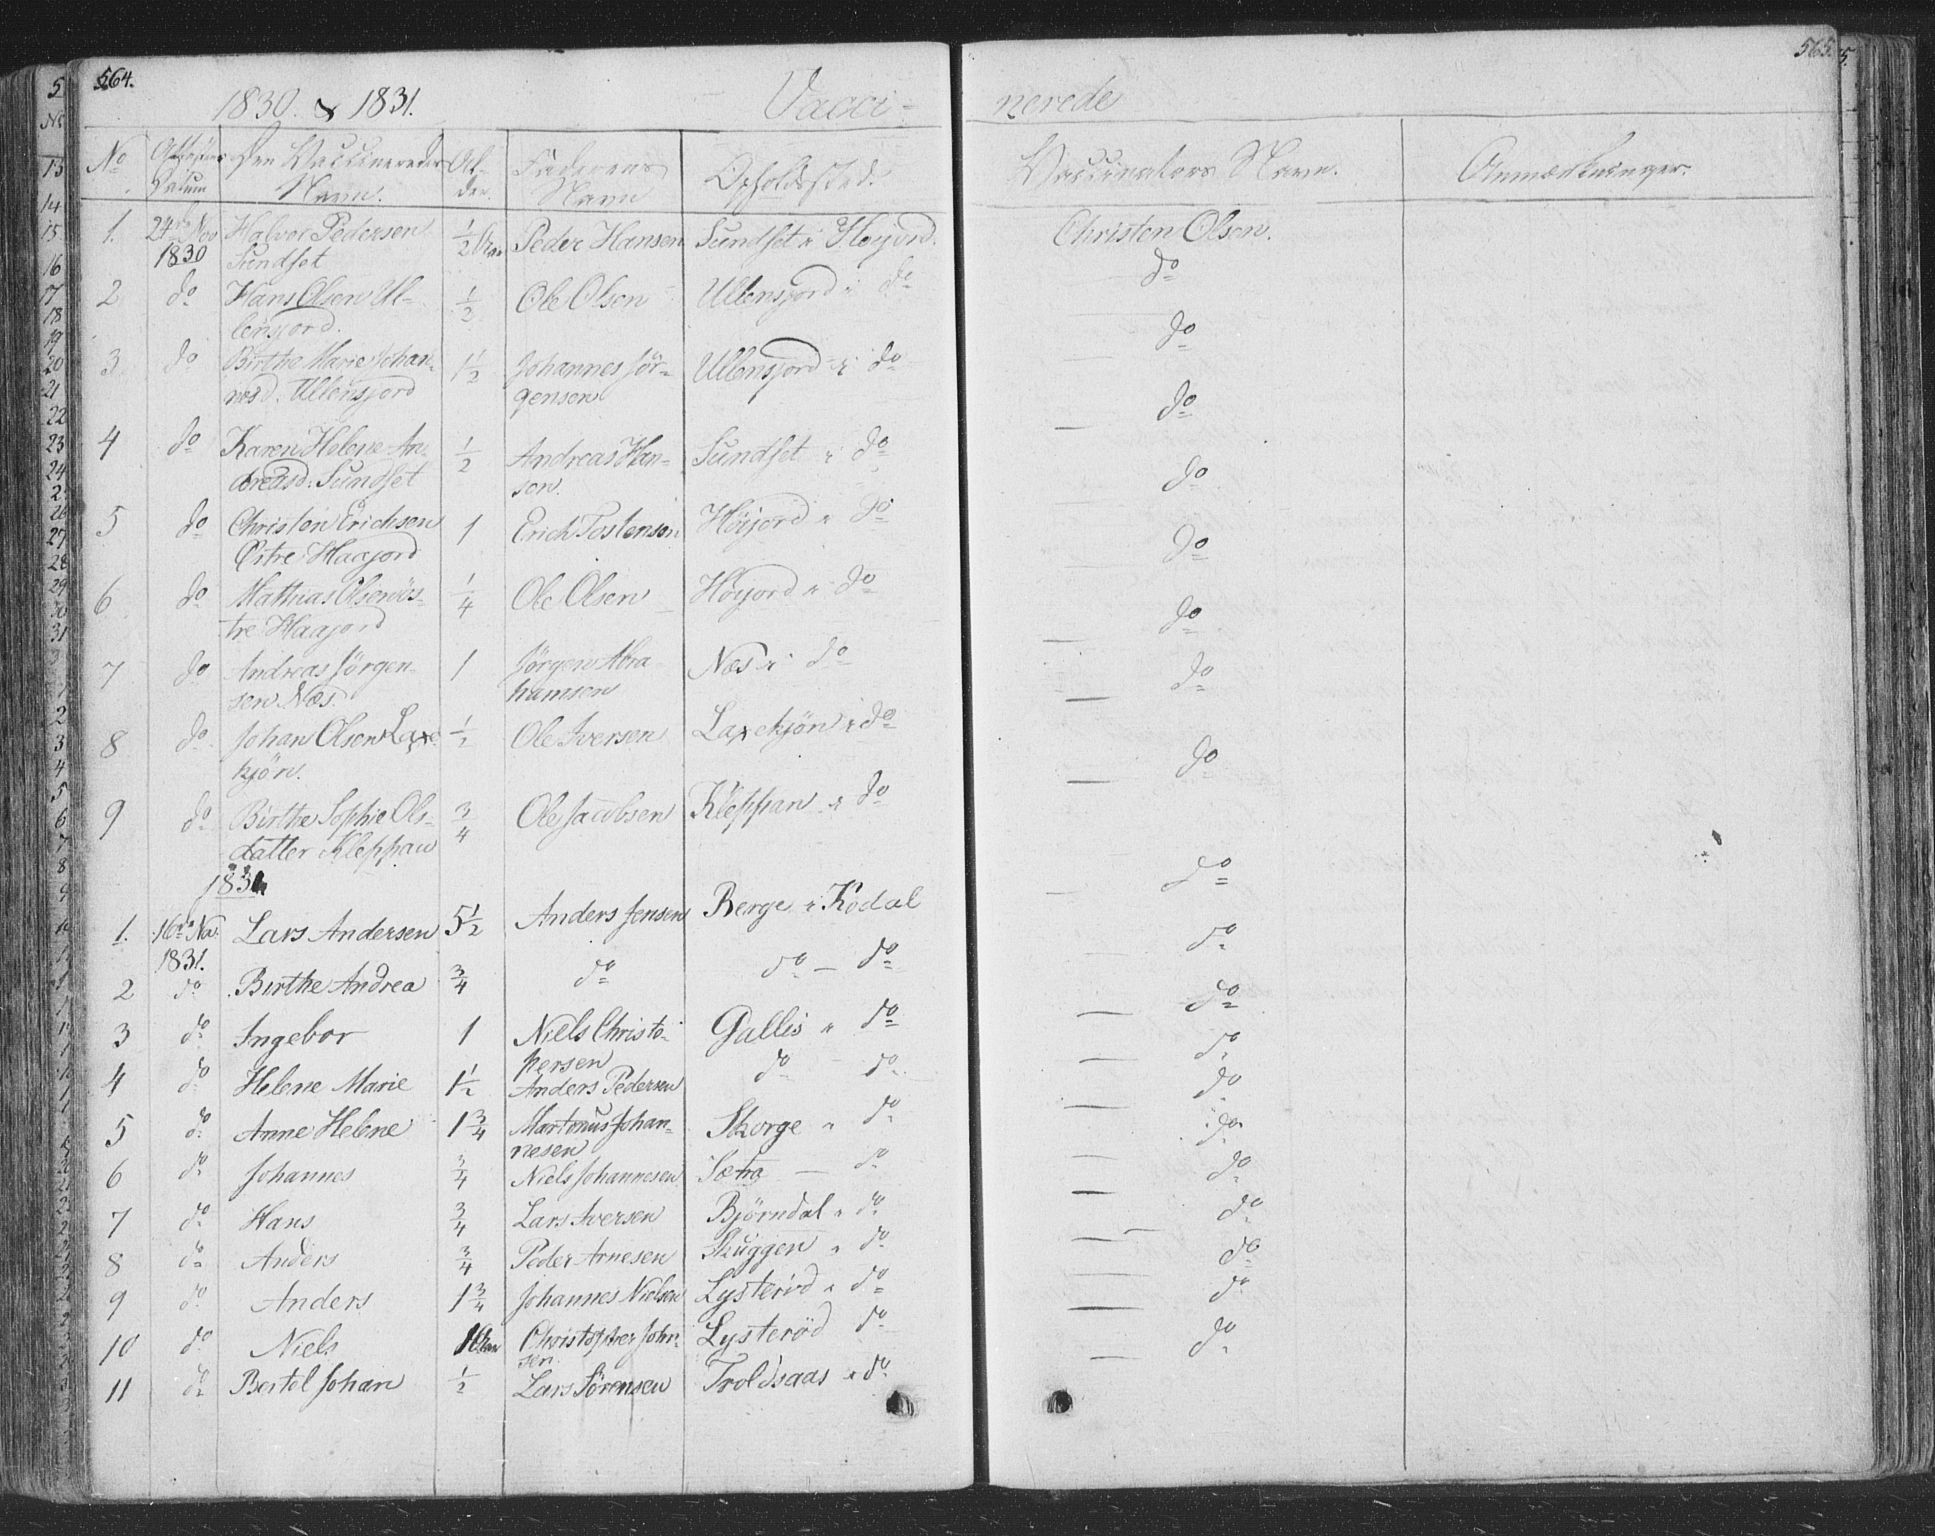 564.
565.
1830. & 1831.
Vacci=
nerede
No
Datum
Den Vaccineredes Navn.
Al-
der.
Faderens
Navn
Opholdssted.
Vaccinators Navn.
Anmærkninger.
1. 24de Nov Halvor Pedersen 1/2 Aar Peder Hansen Sundset i Høyjord. Christen Olsen.
1830 Sundset
2 do Hans Olsen Ul- 1/2 Ole Olsen Ullensjord i do do
lensjord.
3 do Birthe Marie Johan- 1 1/2 Johannes Jör- Ullensjord i do do
nesd. Ullensjord gensen
4 do Karen Helene An- 1/2 Andreas Han- Sundset i do — do
dreasd. Sundset sen.
5 do Christen Erichsen 1 Erich Tostensen Höyjord i do — do
Östre Haajord
6 do Mathias Olsen ös- 1/4 Ole Olsen Höyjord i do — do
tre Haajord
7 do Andreas Jörgen- 1 Jörgen Abra- Næs i do — do
sen Næs. hamsen
8 do Johan Olsen Laxe- 1/2 Ole Iversen Laxekjön i do — do
kjön.
9 do Birthe Sophie Ols- 3/4 Ole Jacobsen Kleppan i do — do
datter Kleppan
1831
1. 16de No. Lars Andersen 5 1/2 Anders Jensen Berge i Kodal — do
1831.
2 do Birthe Andrea 3/4 do do — do — do
3 do Ingebor 1 Niels Christo- Gallis i do — do
phersen
4 do Helene Marie 1 1/2 Anders Pedersen do do — do
5 do Anne Helene 1 3/4 Martinus Johan- Skorge i do — do
nesen
6 do Johannes 3/4 Niels Johannesen Sætra — do — do
7 do Hans 3/4 Lars Iversen Björndal i do — do
8 do Anders 3/4 Peder Arnesen Skuggen i do — do
9 do Anders 1 3/4 Johannes Nielsen Lysteröd i do — do
10 do Niels 10 Christopher John- Lysteröd do — do
sen.
11 do Bertel Johan 1/2 Lars Sörensen Troldsaas i do — do